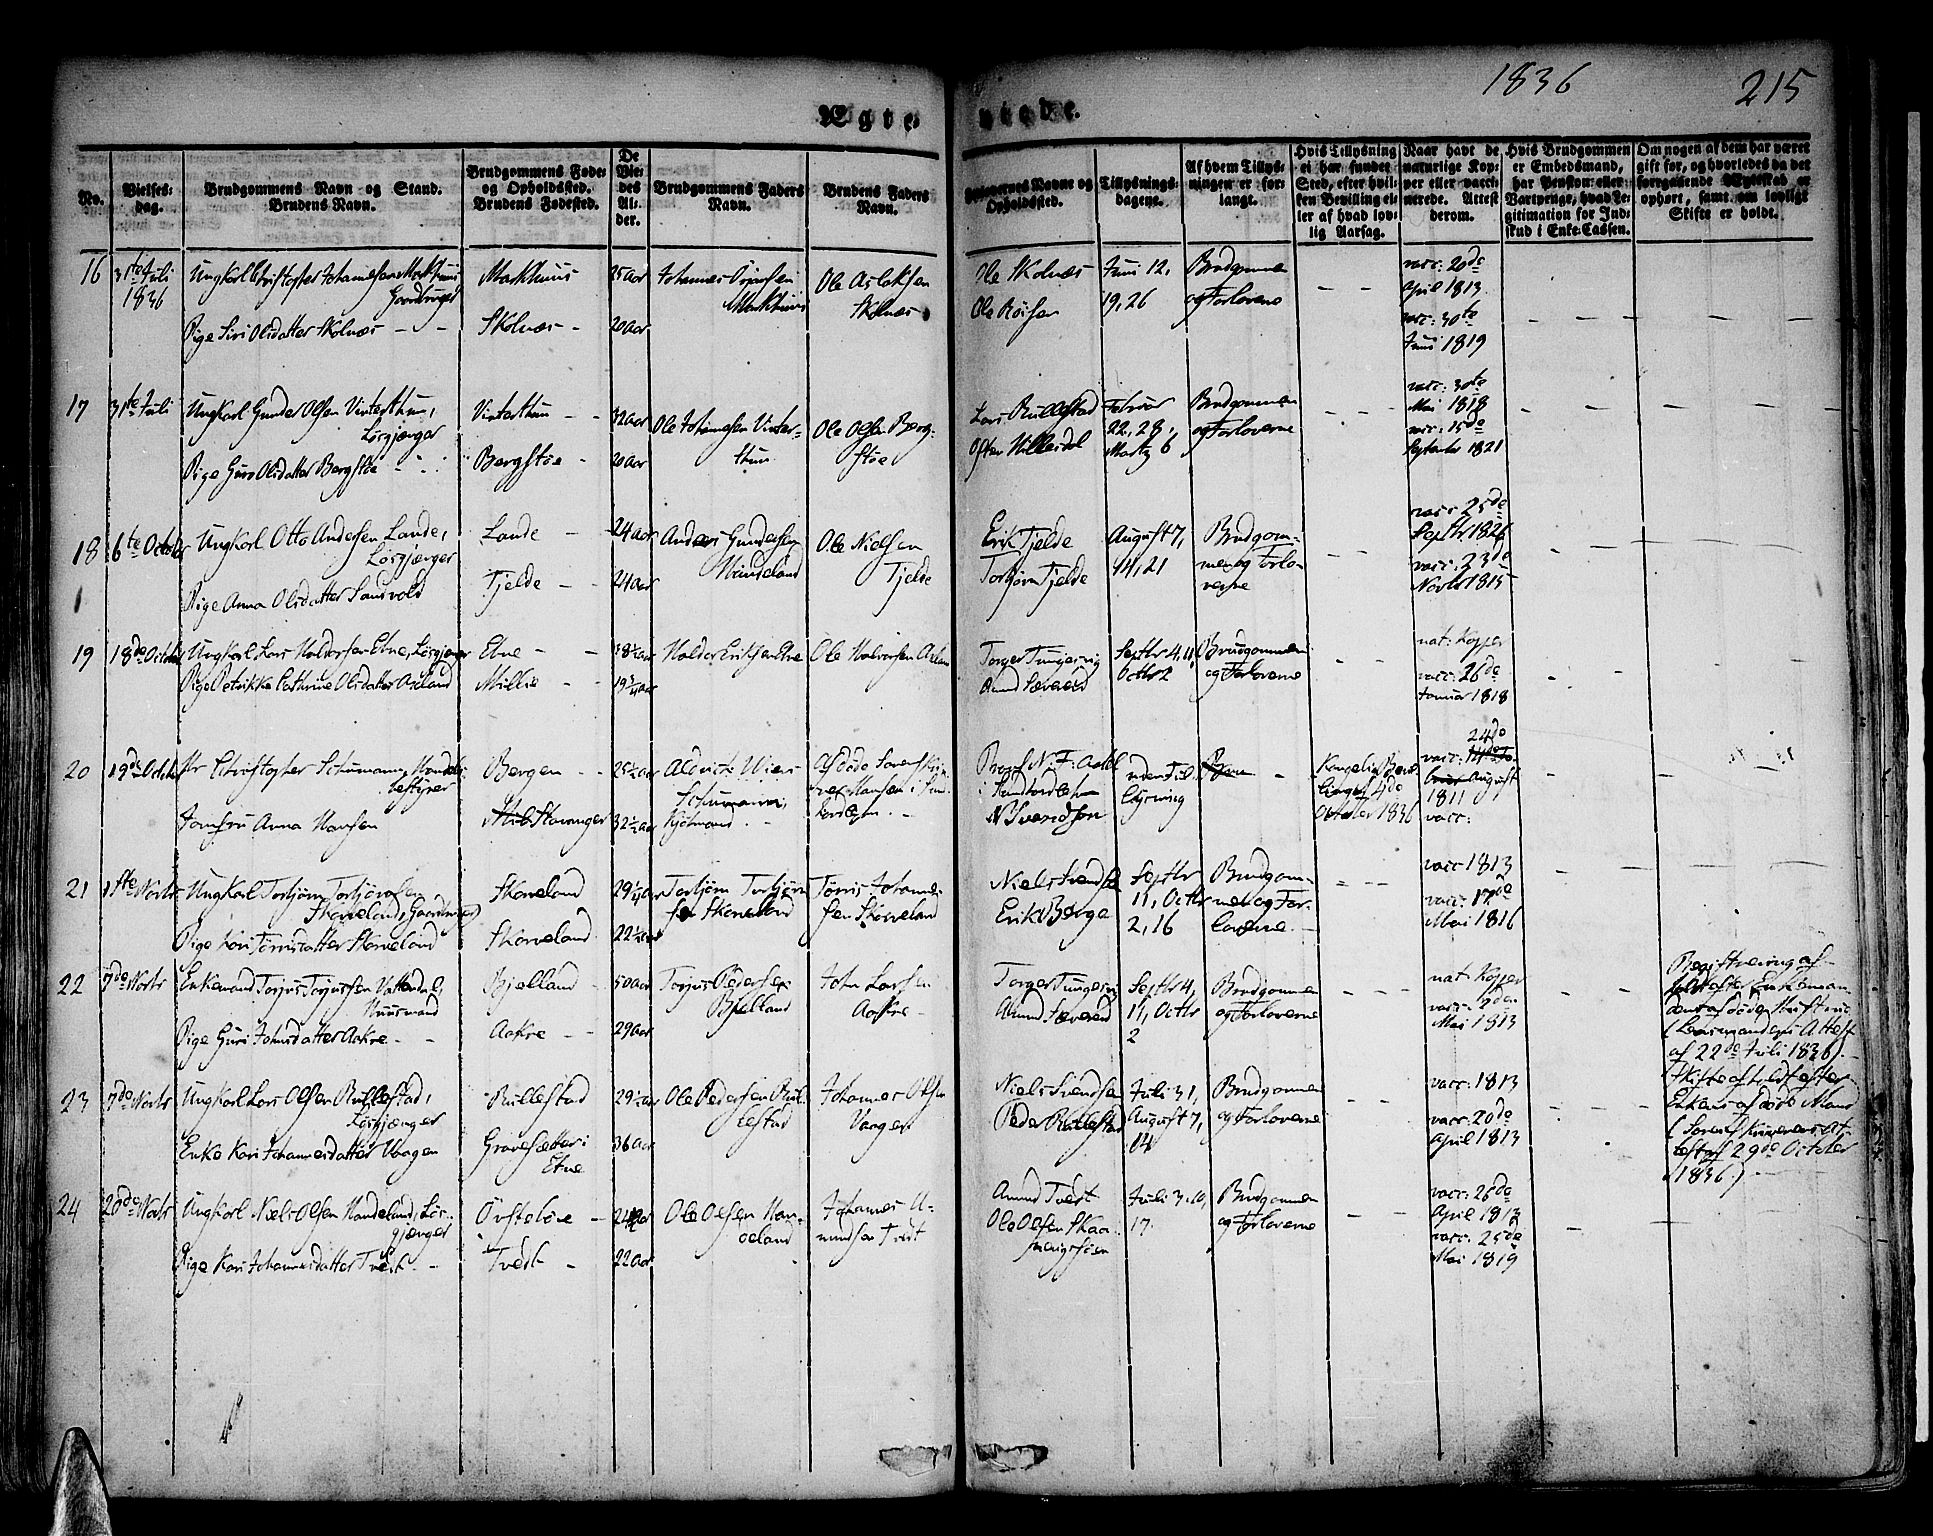 1836
215
Ægte-
viede.
No.
Vielses-
dag.
Brudgommens Navn og Stand.
Brudens Navn.
Brudgommens Føde-
og Opholdssted.
Brudens Fødested.
De
Vie-
des
Al-
der.
Brudgommens Faders
Navn.
Brudens Faders
Navn.
Navne og
Opholdssted.
Tillysnings-
dagene.
Af hvem Tillys-
ningen er for-
langt.
Hvis Tillysning
ei har fundet
Sted, efter hvil-
ken Bevilling el-
ler af hvad lov-
lig Aarsag.
Naar havt de
naturlige Kop-
per eller vacci-
nerede. Attest
derom.
Hvis Brudgommen
er Embedsmand,
har Pension eller
Vartpenge, hvad Le-
gitimation for Ind-
skud i Enke-Cassen.
Om nogen af dem har været
gift før, og hvorledes da det
foregaaende Ægteskab er
ophørt, samt om lovligt
Skifte er holdt.
16
31te Juli
1836
Ungkarl Christopher Johannesen Markhuus
Gaardbruger
Pige Siri Olsdatter Skolnæs
Markhuus
Skolnæs
25 Aar
20 Aar
Johannes
Markhuus
Ole Aslaksen
Skolnæs
Ole Skolnæs
Ole
Juni 12,
19, 26
Brudgommen
og Forloverne
vacc: 20de
April 1813
vacc: 30te
Juni 1819
17
31te Juli
Ungkarl Gunder Olsen Vinterthun,
Løsgjænger
Pige Guro Olsdatter Bergstøe
Vinterthun
Bergstøe
32 Aar
20 Aar
Ole Johannesen Vinter-
thun
Ole Olsen Berg-
støe
Lars Rullestad
Osten Milleidal
Februar
22, 28,
Martz 6
Brudgommen
og Forloverne
vacc: 30te
Mai 1818
vacc: 15de
September 1821
18
6te October
Ungkarl Otto Andersen Lande,
Løsgjænger
Pige Anna Olsdatter Sandvold
Lande
Fjelde
24 Aar
24 Aar
Anders Gundersen
Ole Nielsen
Tjelde
Erik Tjelde
Torbjørn Tjelde
August 7,
14, 21
Brudgom-
men og Forlo-
verne
vacc: 25de
Septbr 1826
vacc: 23de
Novbr 1815
19
18de October
Ungkarl Lars Haldorsen Etne, Løsgjænger
Pige Petrikke Cathrine Olsdatter Aseland
Etne
Millie
19¾ Aar
Haldor Eriksen Etne
Ole Halvorsen
Torger Tungesvig
Amund Sævereid
Septbr 4, 11,
Octbr 2
Brudgommen
og Forloverne
nat: Kopper
vacc: 26de
Januar 1818
20
19de Octbr
Hr Christopher Schumann, Handels-
bestyrer
Jomfru Anna Hansen
Bergen
Stavanger
25½ Aar
32½ Aar
Schumann,
Kjøbmand
Afdøde
uden Til-
lysning
October 1836
24de
vacc:
August
1811
vacc:
21
1ste Novbr
Ungkarl Torbjørn Torbjørnsen
Skoveland, Gaardbruger
Pige Kari Tørrisdatter Skoveland
Skoveland
Skoveland
29¼ Aar
22½ Aar
Torbjørn Torbjørn-
sen Skoveland
Tørris Johanne-
sen Skoveland
Niels Svendsen
Erik Børge
Septbr
11, Octbr
2, 16
Brudgom-
men og For-
loverne
vacc: 1813
vacc: 17de
Mai 1816
22
7de Novbr
Enkemand Torjus Torjussen Vattedal,
Huusmand
Pige Guri Johnsdatter Aakre
Bjelland
Aakre
50 Aar
29 Aar
Torjus Pedersen
Bjelland
John Larsen
Aakre
Torger Tungesvig
Amund Sævereid
Septbr 4,
11, Octbr
2
Brudgommen
og Forloverne
nat: Kopper
vacc: 2den
Mai 1813
Registrering af-
holdt efter Enkeman-
dens afdøde Hustrue
Attest
af 22de Juli 1836).
23
7de Novbr
Ungkarl Lars Olsen Rullestad,
Løsgjænger
Enke Kari Johannesdatter Vaagen
Rullestad
Gravesætter i
Etne
29½ Aar
36 Aar
Ole Pedersen Rul-
lestad
Johannes Olsen
Vaagen
Niels Svendsen
Peder Rullestad
Juli 31,
August 7,
14
Brudgommen
og Forloverne
vacc: 1813
vacc: 20de
April 1813
Skifte afholdt efter
Enkens afdøde Mand
At-
test af 29de October
1836.)
24
20de Novbr
Ungkarl Niels Olsen Handeland, Løs-
gjænger
Pige Kari Johannesdatter Tvedt
Øvsteløe
Tvedt
22 Aar
Ole Olsen Han-
deland
Johannes A-
mundsen Tvedt
Amund Tvedt
Ole Olsen
Juli 3, 10,
17.
Brudgommen
og Forloverne
vacc: 26de
April 1813
vacc: 25de
Mai 1819